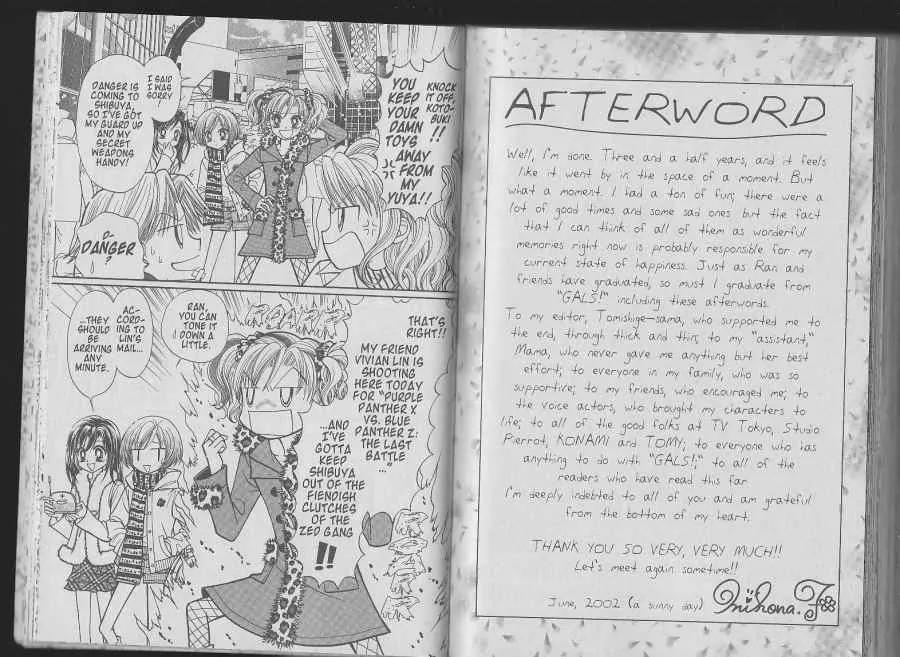 KNOCK
IT OFF,
KOTO-
BUKI
!!
YOU
KEEP
YOUR
DAMN
TOYS
AWAY
FROM
MY
YUYA!!
I SAID
I WAS
SORRY
DANGER IS
COMING TO
SHIBUYA,
SO I'VE GOT
MY GUARD UP
AND MY
SECRET
WEAPONS
HANDY!
D-
DANGER
?
THAT'S
RIGHT!!
MY FRIEND
VIVIAN LIN IS
SHOOTING
HERE TODAY
FOR "PURPLE
PANTHER X
VS. BLUE
PANTHER Z:
THE LAST
BATTLE
..."
...AND
I'VE
GOTTA
KEEP
SHIBUYA
OUT OF THE
FIENDISH
CLUTCHES
OF THE
ZED GANG
!!
RAN,
YOU CAN
TONE IT
DOWN A
LITTLE.
AC-
CORD-
ING TO
LIN'S
MAIL...
...THEY
SHOULD
BE
ARRIVING
ANY
MINUTE.
AFTERWORD
Well, I'm done. Three and a half years, and it feels
like it went by in the space of a moment. But
what a moment. I had a ton of fun; there were a
lot of good times and some sad ones but the fact
that I can think of all of them as wonderful
memories right now is probably responsible for my
current state of happiness. Just as Ran and
friends have graduated, so must I graduate from
"GALS!" including these afterwords.
To my editor, Tomishige-sama, who supported me to
the end, through thick and thin; to my "assistant,"
Mama, who never gave me anything but her best
effort; to everyone in my family, who was so
supportive; to my friends, who encouraged me; to
the voice actors, who brought my characters to
life; to all of the good folks at TV Tokyo, Studio
Pierrot, KONAMI and TOMY; to everyone who has
anything to do with "GALS!;" to all of the
readers who have read this far
I'm deeply indebted to all of you and am grateful
from the bottom of my heart.
THANK YOU SO VERY, VERY MUCH!!
Let's meet again sometime!!
June, 2002 (a sunny day) Mihona. F